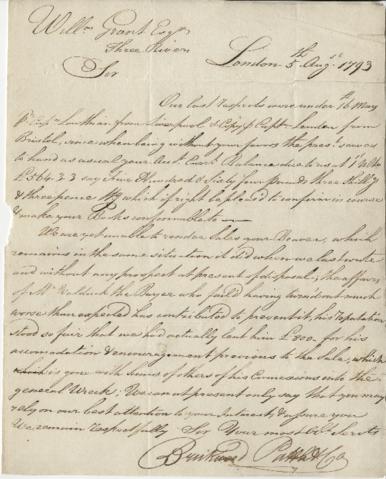 Willm Grant Esqr
Three Rivers
London 5th Augst 1793
Sir
Our last respects were under 16 May
p Capt from Liverpool & Copy p Capt London from
Bristol, since when being without your favors the present serves
to hand as usual your Acct Currt Balance due to us at 1st Ulto
£564.3.3 say Five Hundred & Sixty four pounds three Shillgs
& three pence Stg which if right be pleased to confirm in course
& make your Books conformable to
We are yet unable to render Sales your Beaver, which
remains in the same situation it did when we last wrote
and without any prospect at present of disposal, the affairs
of Mr the Buyer who fail'd having turn'd out much
worse than expected has contributed to prevent it, his Reputation
stood so fair that we had actually lent him £200 for his
accomodation & encouragement previous to the Sale, which
is gone with Sums of others of his Connexions into the
general Wreck; We can at present only say that you may
rely on our best attention to your Interests, & assure you
We remain respectfully Sir Your most Obt Servts
Brickwood Pattle & Co